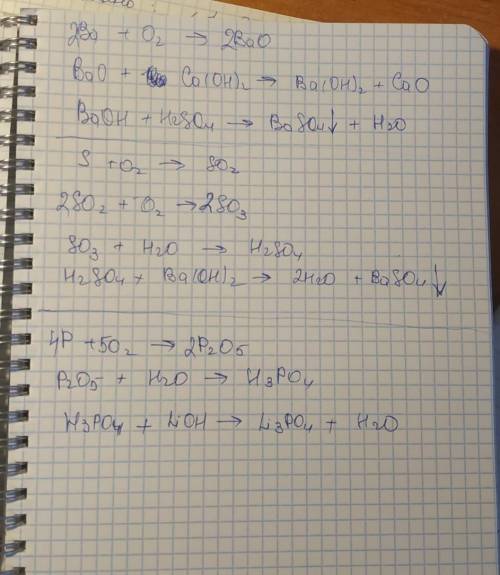 2Ba + O₂ → 2BaO
BaO + Ca(OH)₂ → Ba(OH)₂ + CaO
BaOH + H2SO4 → BaSO4↓ + H2O
S + O₂ → SO₂
2SO₂ + O₂ → 2SO₃
SO₃ + H2O → H2SO4
H2SO4 + Ba(OH)₂ → 2H2O + BaSO4↓
4P + 5O₂ → 2P2O5
P2O5 + H2O → H3PO4
H3PO4 + LiOH → Li3PO4 + H2O